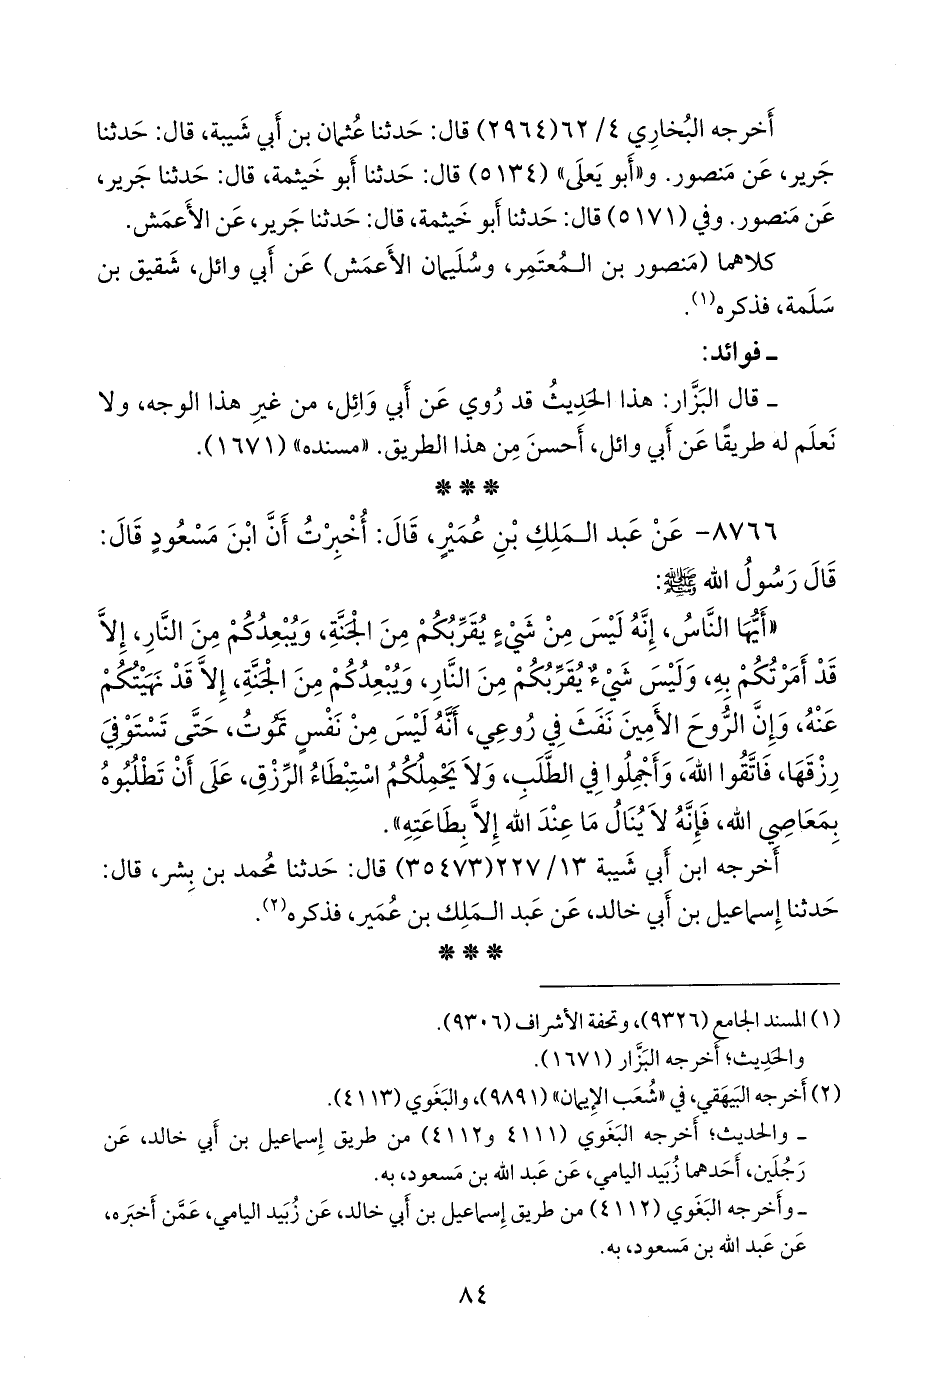 أَخرجه البُخاري ٤/ ٦٢(٢٩٦٤) قال: حَدثنا عُثمان بن أَبي شَيبة، قال: حَدثنا
جَرير، عَن مَنصور. و«أَبو يَعلَى» (٥١٣٤) قال: حَدثنا أَبو خَيثمة، قال: حَدثنا جَرير،
عَن مَنصور. وفي (٥١٧١) قال: حَدثنا أَبو خَيثمة، قال: حَدثنا جَرير، عَن الأَعمَش.
كلاهما (مَنصور بن الـمُعتَمِر، وسُليمان الأَعمَش) عَن أَبي وائل، شَقيق بن
سَلَمة، فذكره(١).
ـ فوائد:
ـ قال البَزَّار: هذا الحَدِيثُ قد رُوي عَن أَبي وَائِل، من غيرِ هذا الوجه، ولا
نَعلَم له طريقًا عَن أَبي وائل، أَحسنَ مِن هذا الطريق. «مسنده» (١٦٧١).
* * *
٨٧٦٦- عَنْ عَبد الـمَلِكِ بْنِ عُمَيْرٍ، قَالَ: أُخْبِرْتُ أَنَّ ابْنَ مَسْعُودٍ قَالَ:
قَالَ رَسُولُ الله ﷺ:
«أَيُّهَا النَّاسُ، إِنَّهُ لَيْسَ مِنْ شَيْءٍ يُقَرِّبُكُمْ مِنَ الجَنَّةِ، وَيُبْعِدُكُمْ مِنَ النَّارِ، إِلاَّ
قَدْ أَمَرْتُكُمْ بِهِ، وَلَيْسَ شَيْءٌ يُقَرِّبُكُمْ مِنَ النَّارِ، وَيُبْعِدُكُمْ مِنَ الجَنَّةِ، إِلاَّ قَدْ نَهَيْتُكُمْ
عَنْهُ، وَإِنَّ الرُّوحَ الأَمِينَ نَفَثَ فِي رُوعِي، أَنَّهُ لَيْسَ مِنْ نَفْسٍ تَمُوتُ، حَتَّى تَسْتَوْفِيَ
رِزْقَهَا، فَاتَّقُوا اللهَ، وَأَجْمِلُوا فِي الطَّلَبِ، وَلاَ يَحْمِلُكُمُ اسْتِبْطَاءُ الرِّزْقِ، عَلَى أَنْ تَطْلُبُوهُ
بِمَعَاصِي الله، فَإِنَّهُ لاَ يُنَالُ مَا عِنْدَ الله إِلاَّ بِطَاعَتِهِ».
أَخرجه ابن أَبي شَيبة ١٣/ ٢٢٧(٣٥٤٧٣) قال: حَدثنا مُحمد بن بِشر، قال:
حَدثنا إِسماعيل بن أَبي خالد، عَن عَبد الـمَلِك بن عُمَير، فذكره(٢).
* * *
(١) المسند الجامع (٩٣٢٦)، وتحفة الأشراف (٩٣٠٦).
والحَدِيث؛ أَخرجه البَزَّار (١٦٧١).
(٢) أَخرجه البَيهَقي، في «شُعَب الإِيمان» (٩٨٩١)، والبَغَوي (٤١١٣).
ـ والحديث؛ أَخرجه البَغَوي (٤١١١ و٤١١٢) من طريق إِسماعيل بن أَبي خالد، عَن
رَجُلَين، أَحَدهما زُبَيد اليامي، عَن عَبد الله بن مَسعود، به.
ـ وأَخرجه البَغَوي (٤١١٢) من طريق إِسماعيل بن أَبي خالد، عَن زُبَيد اليامي، عَمَّن أَخبَره،
عَن عَبد الله بن مَسعود، به.
٨٤